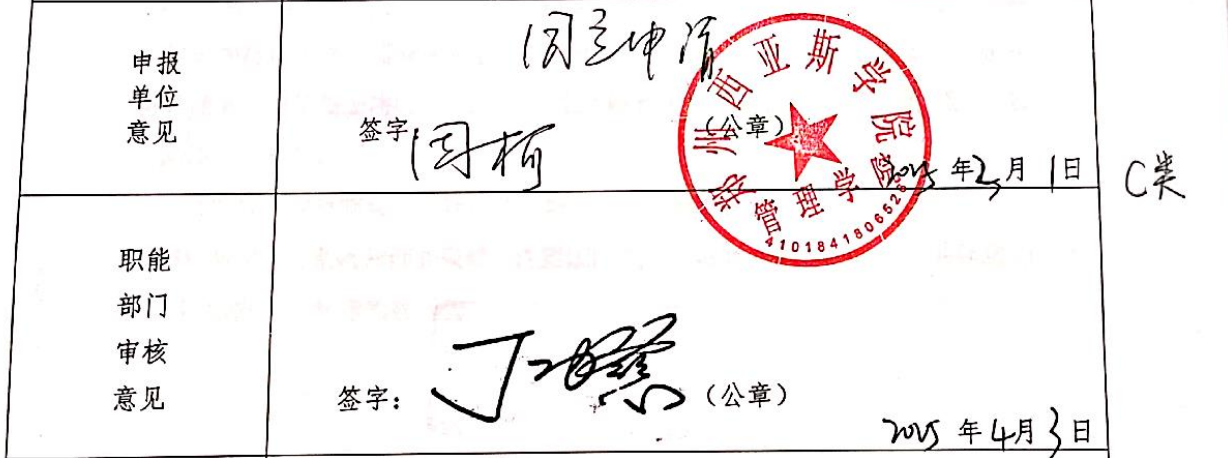 申报
单位
意见
同意申请
签字
周柯
(公章)
郑州西亚斯学院
管理学院
2025年2月1日
C类
职能
部门
审核
意见
签字:
(公章)
2025年4月3日